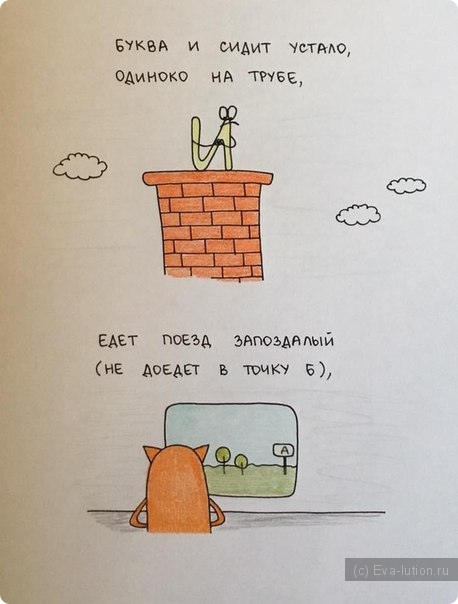 БУКВА И СИДИТ УСТАЛО,
ОДИНОКО НА ТРУБЕ,
ЕДЕТ ПОЕЗД ЗАПОЗДАЛЫЙ
(НЕ ДОЕДЕТ В ТОЧКУ Б),
А
(c) Eva-lution.ru